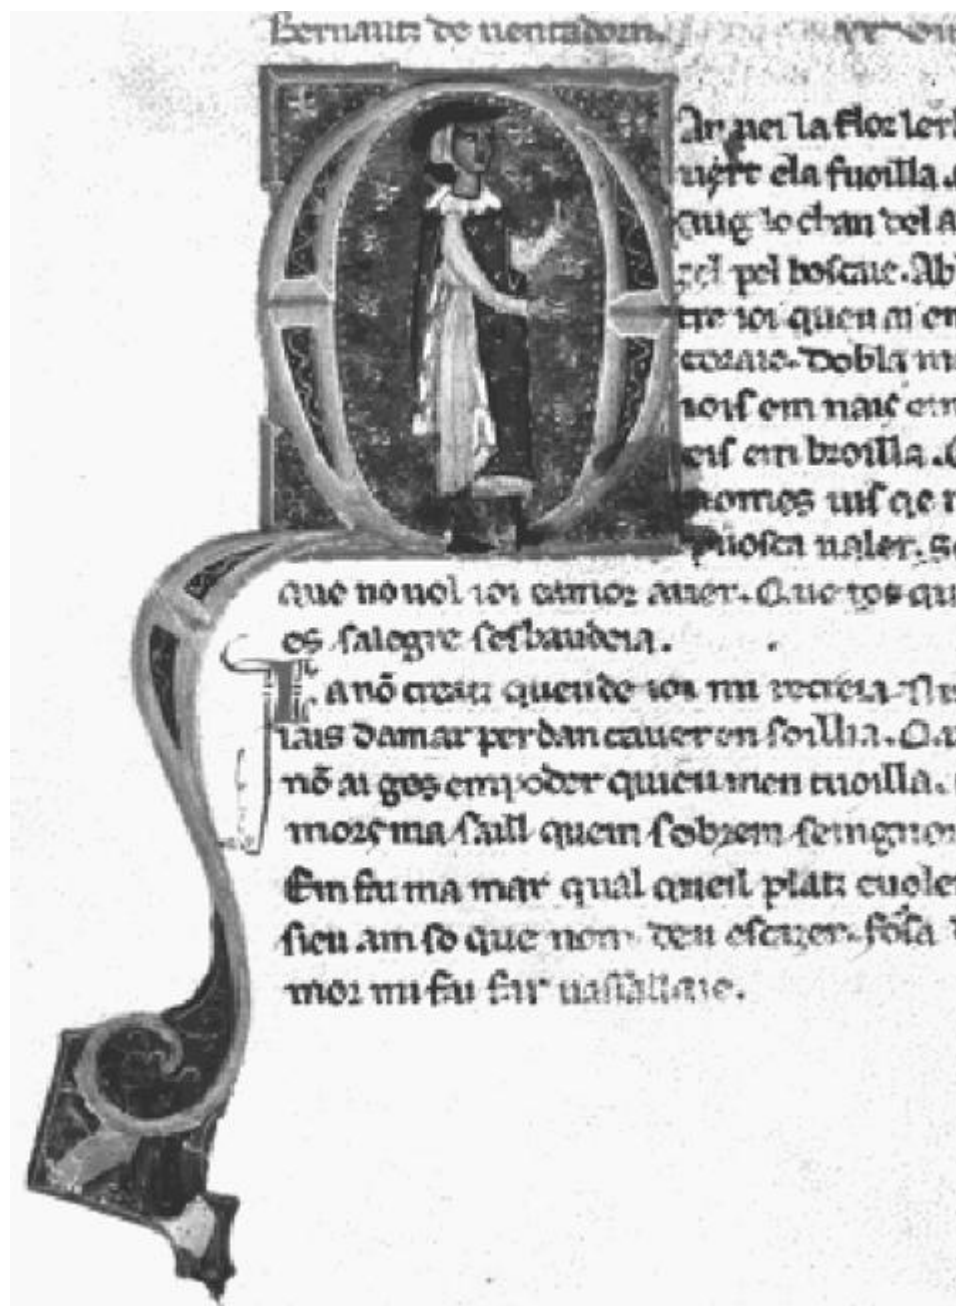 Bernautz de uentadorn.
Quan uei la flor lerb
uert ela fuoilla.
aug lo chan del a
gel pel boscaie. Ab
tre ioi queu ai en
coraie. Dobla m
iois em nais em
eis em broilla.
nomes uis qe
puosca ualer. s
que no uol ioi camor auer. Que tos qu
es salegre sesbaudeia.
Ia nō creatz queu de ioi mi recreia. Ni
iais damar per dan cauer en soillia. Ca
nō ai ges em poder quieu men tuoilla.
mors ma saill quem sobrem seingnor
Em fai ma mar qual qeill platz e uoler
sieu am so que nom deu escazer. fosa d
mor mi fai far uassallaie.